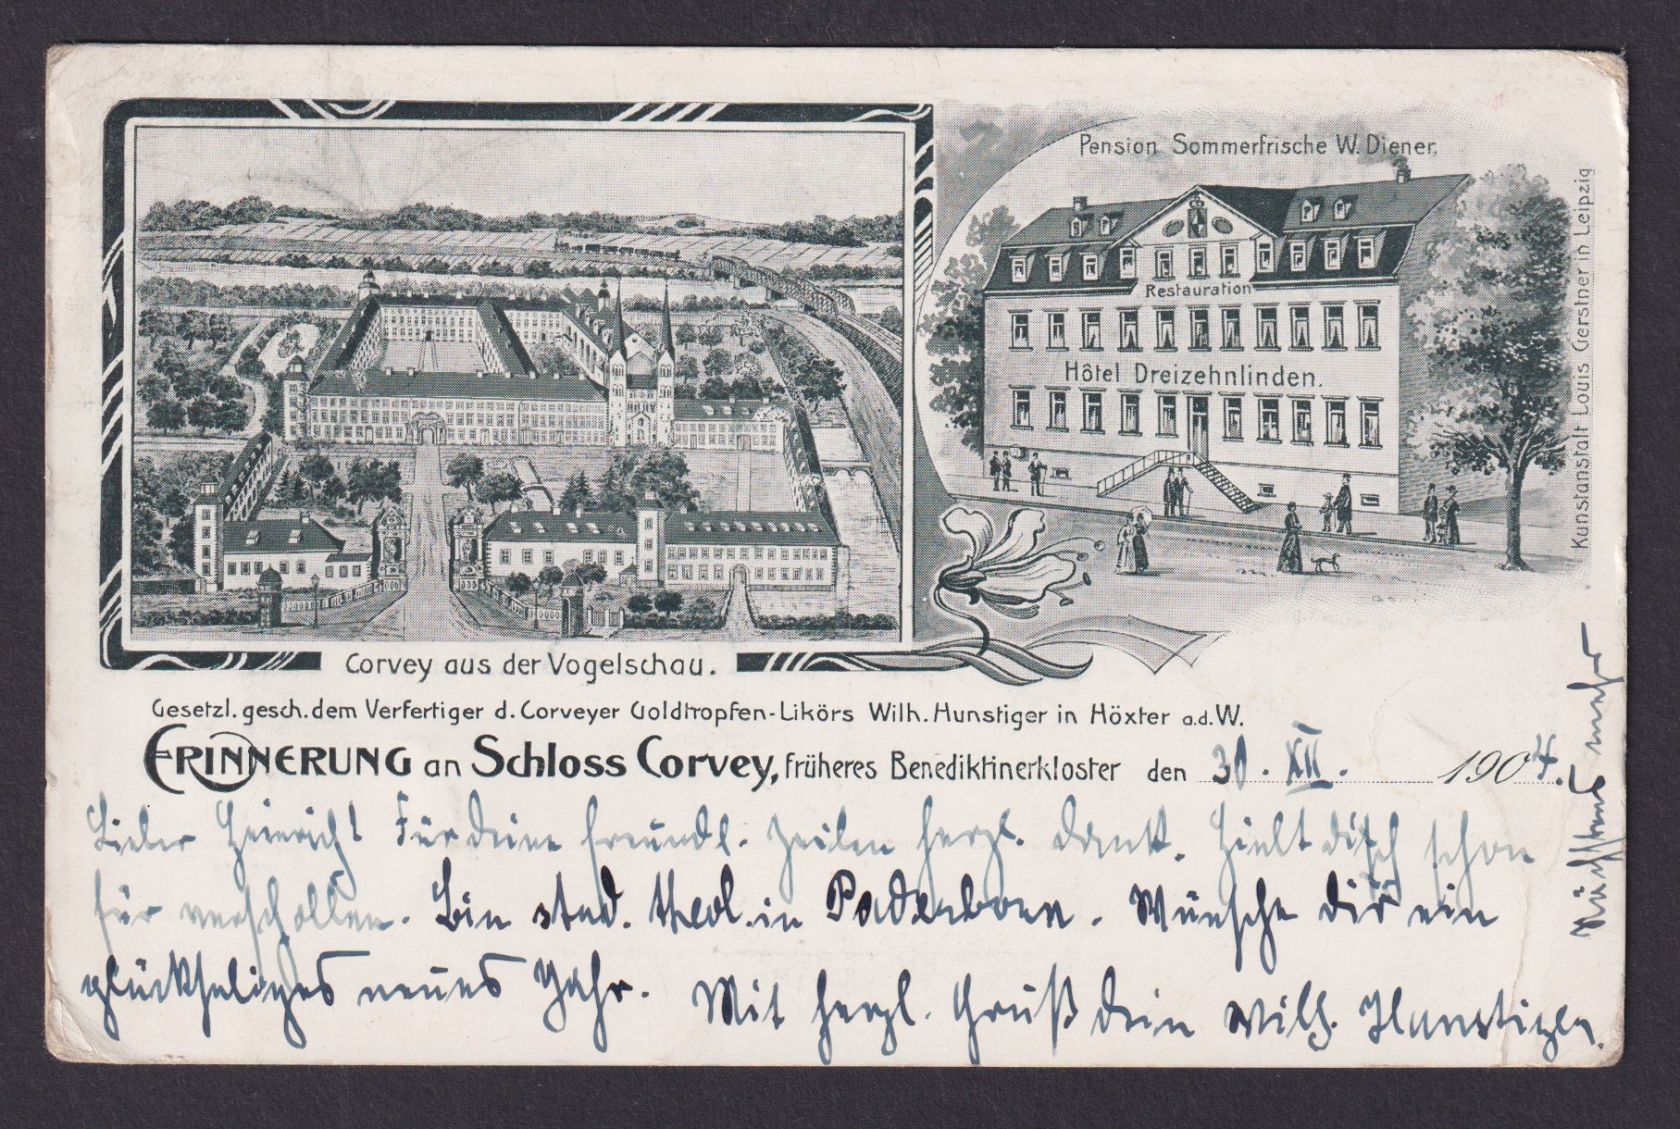 Pension Sommerfrische W. Diener.
Restauration
Hôtel Dreizehnlinden.
Kunstanstalt Louis Gerstner in Leipzig
Corvey aus der Vogelschau.
Gesetzl. gesch. dem Verfertiger d. Corveyer Goldtropfen-Likörs Wilh. Hunstiger in Höxter a.d.W.
ERINNERUNG an Schloss Corvey, früheres Benediktinerkloster den 30. XII. 1904.
Lieber Heinrich! Für deine freundl. Zeilen herzl. Dank. Hielt dich schon
für verschollen. Bin stud. theol. in Paderborn. Wünsche dir ein
glückseliges neues Jahr. Mit herzl. Gruß dein Wilh. Hunstiger.
Nächstens mehr